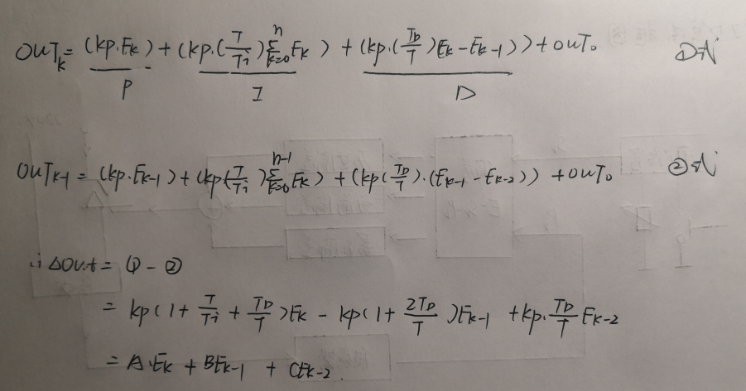 OUT_k = (kp·Ek) + (kp·(T/Ti)∑_{k=0}^{n}Ek) + (kp·(TD/T)Ek-Ek-1)) + OUT₀ ①式
P I D
OUT_k-1 = (kp·Ek-1) + (kp(T/Ti)∑_{k=0}^{n-1}Ek) + (kp(TD/T)·(Ek-1-Ek-2)) + OUT₀ ②式
∴ΔOUt = ①-②
= kp(1+T/Ti+TD/T)Ek - kp(1+2TD/T)Ek-1 + kp·TD/T Ek-2
= A·Ek + BEk-1 + CEk-2.